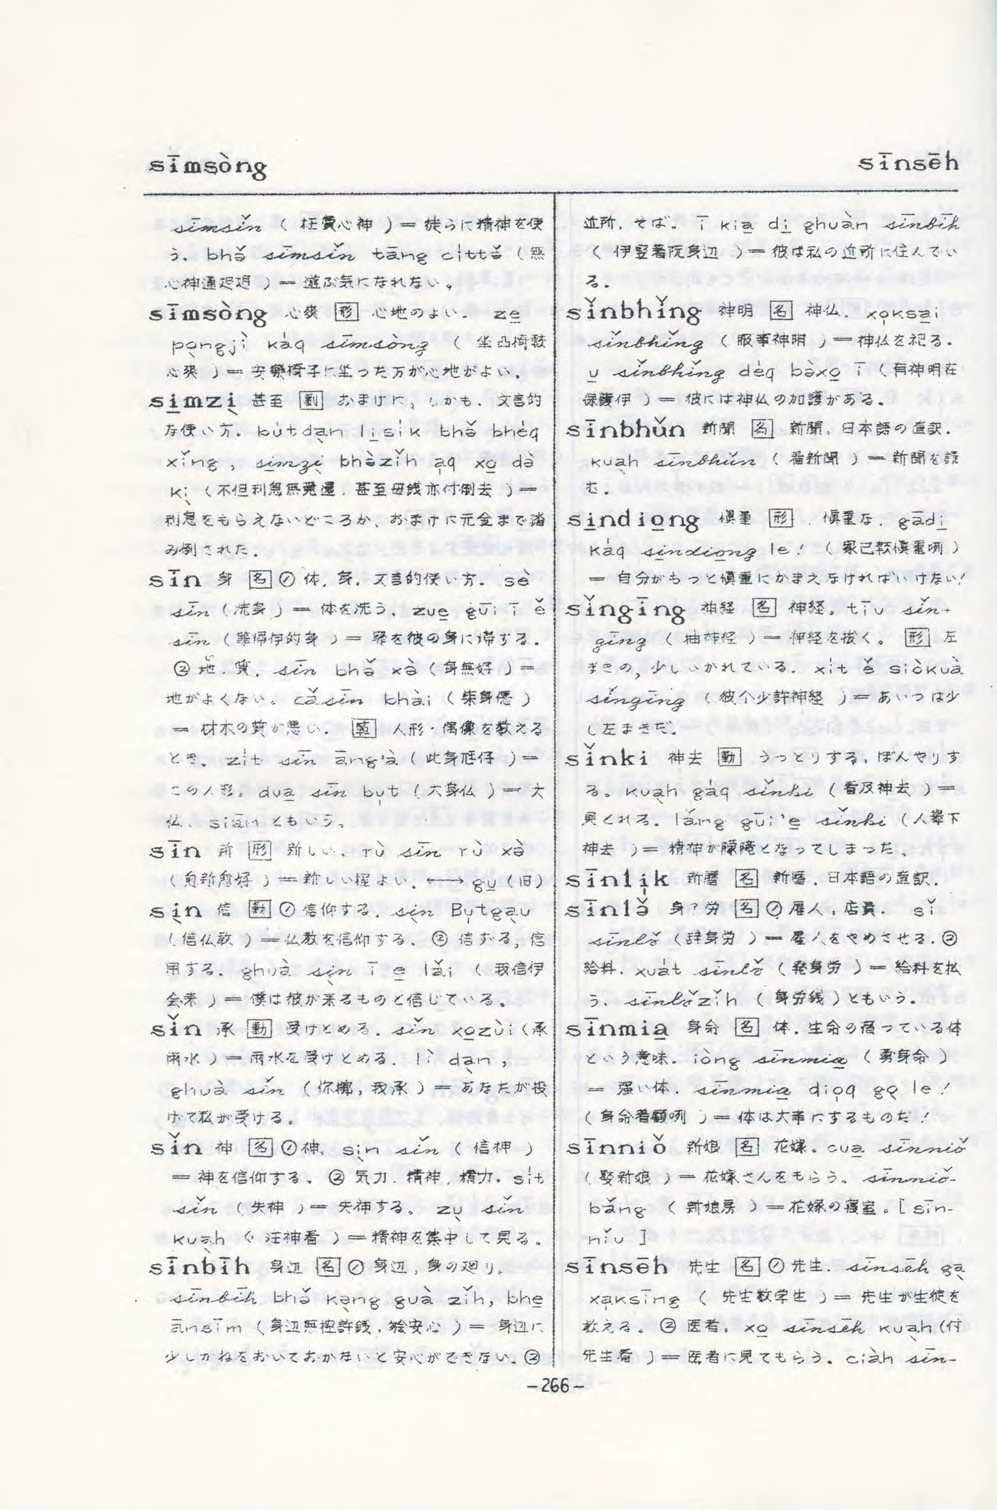 sīmsòng
sīnsēh
sīmsǐn ( 枉費心神 ) ＝ 徒らに精神を使
う. bhǒ sīmsǐn tāng cittǒ ( 無
心神通𨑨迌 ) ＝ 遊ぶ気になれない。
sīmsòng 心爽 [形] 心地のよい. ze
pongjì kaq sīmsòng ( 坐凸椅較
心爽 ) ＝ 安楽椅子に坐った方が心地がよい。
simzi 甚至 [副] おまけに, しかも. 文言的
な使い方. butdan lisik bhǒ bheq
xǐng , simzi bhèzǐh aq xo dè
ki ( 不但利息無愛還 , 甚至母銭亦付倒去 ) ＝
利息をもらえないどころか、おまけに元金まで踏
み倒された。
sīn 身 [名] ① 体, 身. 文言的使い方. sè
sīn ( 洗身 ) ＝ 体を洗う. zue gūi ī ě
sīn ( 罪帰伊的身 ) ＝ 罪を彼の身に帰する.
② 地, 質. sīn bhǒ xè ( 身無好 ) ＝
地がよくない。 cǎsīn bhài ( 柴身僫 )
＝ 材木の質が悪い. [量] 人形・偶像を数える
とき. zit sīn āng'à ( 此身尪仔 ) ＝
この人形。 dua sīn but ( 大身仏 ) ＝ 大
仏. siān ともいう。
sīn 新 [形] 新しい. rù sīn rù xè
( 愈新愈好 ) ＝ 新しい程よい. ←→ gu (旧)
sin 信 [動] ① 信仰する. sin Butgau
( 信仏教 ) ＝ 仏教を信仰する. ② 信ずる, 信
用する. ghuà sin ī e lǎi ( 我信伊
会来 ) ＝ 僕は彼が来るものと信じている。
sǐn 承 [動] 受けとめる. sǐn xozùi (承
雨水 ) ＝ 雨水を受けとめる. lì dan ,
ghuà sǐn ( 你擲, 我承 ) ＝ あなたが投
げて私が受ける。
sǐn 神 [名] ① 神. sin sǐn ( 信神 )
＝ 神を信仰する. ② 気力, 精神, 精力. sit
sǐn ( 失神 ) ＝ 失神する. zu sǐn
kuah ( 注神看 ) ＝ 精神を集中して見る.
sīnbīh 身辺 [名] ① 身辺, 身の廻り.
sīnbīh bhǒ kang guà zǐh, bhe
ānsīm ( 身辺無控許銭, 𣍐安心 ) ＝ 身辺に
少しかねをおいておかないと安心ができない. ②
近所, そば. ī kia di ghuàn sīnbīh
( 伊竪著阮身辺 ) ＝ 彼は私の近所に住んでい
る.
sǐnbhǐng 神明 [名] 神仏. xoksai
sǐnbhǐng ( 服事神明 ) ＝ 神仏を祀る.
u sǐnbhǐng deq bèxo ī ( 有神明在
保護伊 ) ＝ 彼には神仏の加護がある。
sīnbhǔn 新聞 [名] 新聞. 日本語の直訳.
kuah sīnbhǔn ( 看新聞 ) ＝ 新聞を読
む.
sindiong 慎重 [形] 慎重な. gādi
kaq sindiong le ! ( 家己較慎重咧 )
＝ 自分がもっと慎重にかまえなければいけない!
sǐngīng 神経 [名] 神経. tīu sǐn-
gīng ( 抽神経 ) ＝ 神経を抜く。 [形] 左
まきの, 少しいかれている. xit ě siòkuà
sǐngīng ( 彼个少許神経 ) ＝ あいつは少
し左まきだ.
sǐnki 神去 [動] うっとりする, ぼんやりす
る. kuah gaq sǐnki ( 看及神去 ) ＝
見とれる. lǎng gūi'e sǐnki ( 人挙下
神去 ) ＝ 精神が朦朧となってしまった。
sīnlik 新暦 [名] 新暦. 日本語の直訳.
sīnlǒ 身?労 [名] ① 雇人, 店員. sǐ
sīnlǒ ( 辞身労 ) ＝ 雇人をやめさせる. ②
給料. xuat sīnlǒ ( 発身労 ) ＝ 給料を払
う. sīnlǒzǐh ( 身労銭 ) ともいう.
sīnmia 身命 [名] 体. 生命の宿っている体
という意味. iòng sīnmia ( 勇身命 )
＝ 強い体. sīnmia dioq go le !
( 身命着顧咧 ) ＝ 体は大事にするものだ!
sīnniǒ 新娘 [名] 花嫁. cua sīnniǒ
( 娶新娘 ) ＝ 花嫁さんをもらう. sīnniǒ-
bǎng ( 新娘房 ) ＝ 花嫁の寝室。[ sīn-
nǐu ]
sīnsēh 先生 [名] ① 先生. sīnsēh ga
xaksīng ( 先生教学生 ) ＝ 先生が生徒を
教える. ② 医者. xo sīnsēh kuah (付
先生看 ) ＝ 医者に見てもらう. ciàh sīn-
-266-